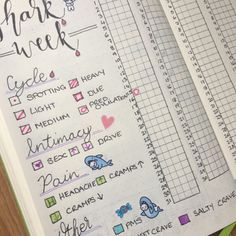 Shark
week
Cycle
SPOTTING
HEAVY
LIGHT
DUE
MEDIUM
PRED
OVULATION
Intimacy
SEX
DRIVE
Pain
HEADACHE
CRAMPS↑
CRAMPS↓
Other
PMS
SALTY CRAVE
SWEET CRAVE